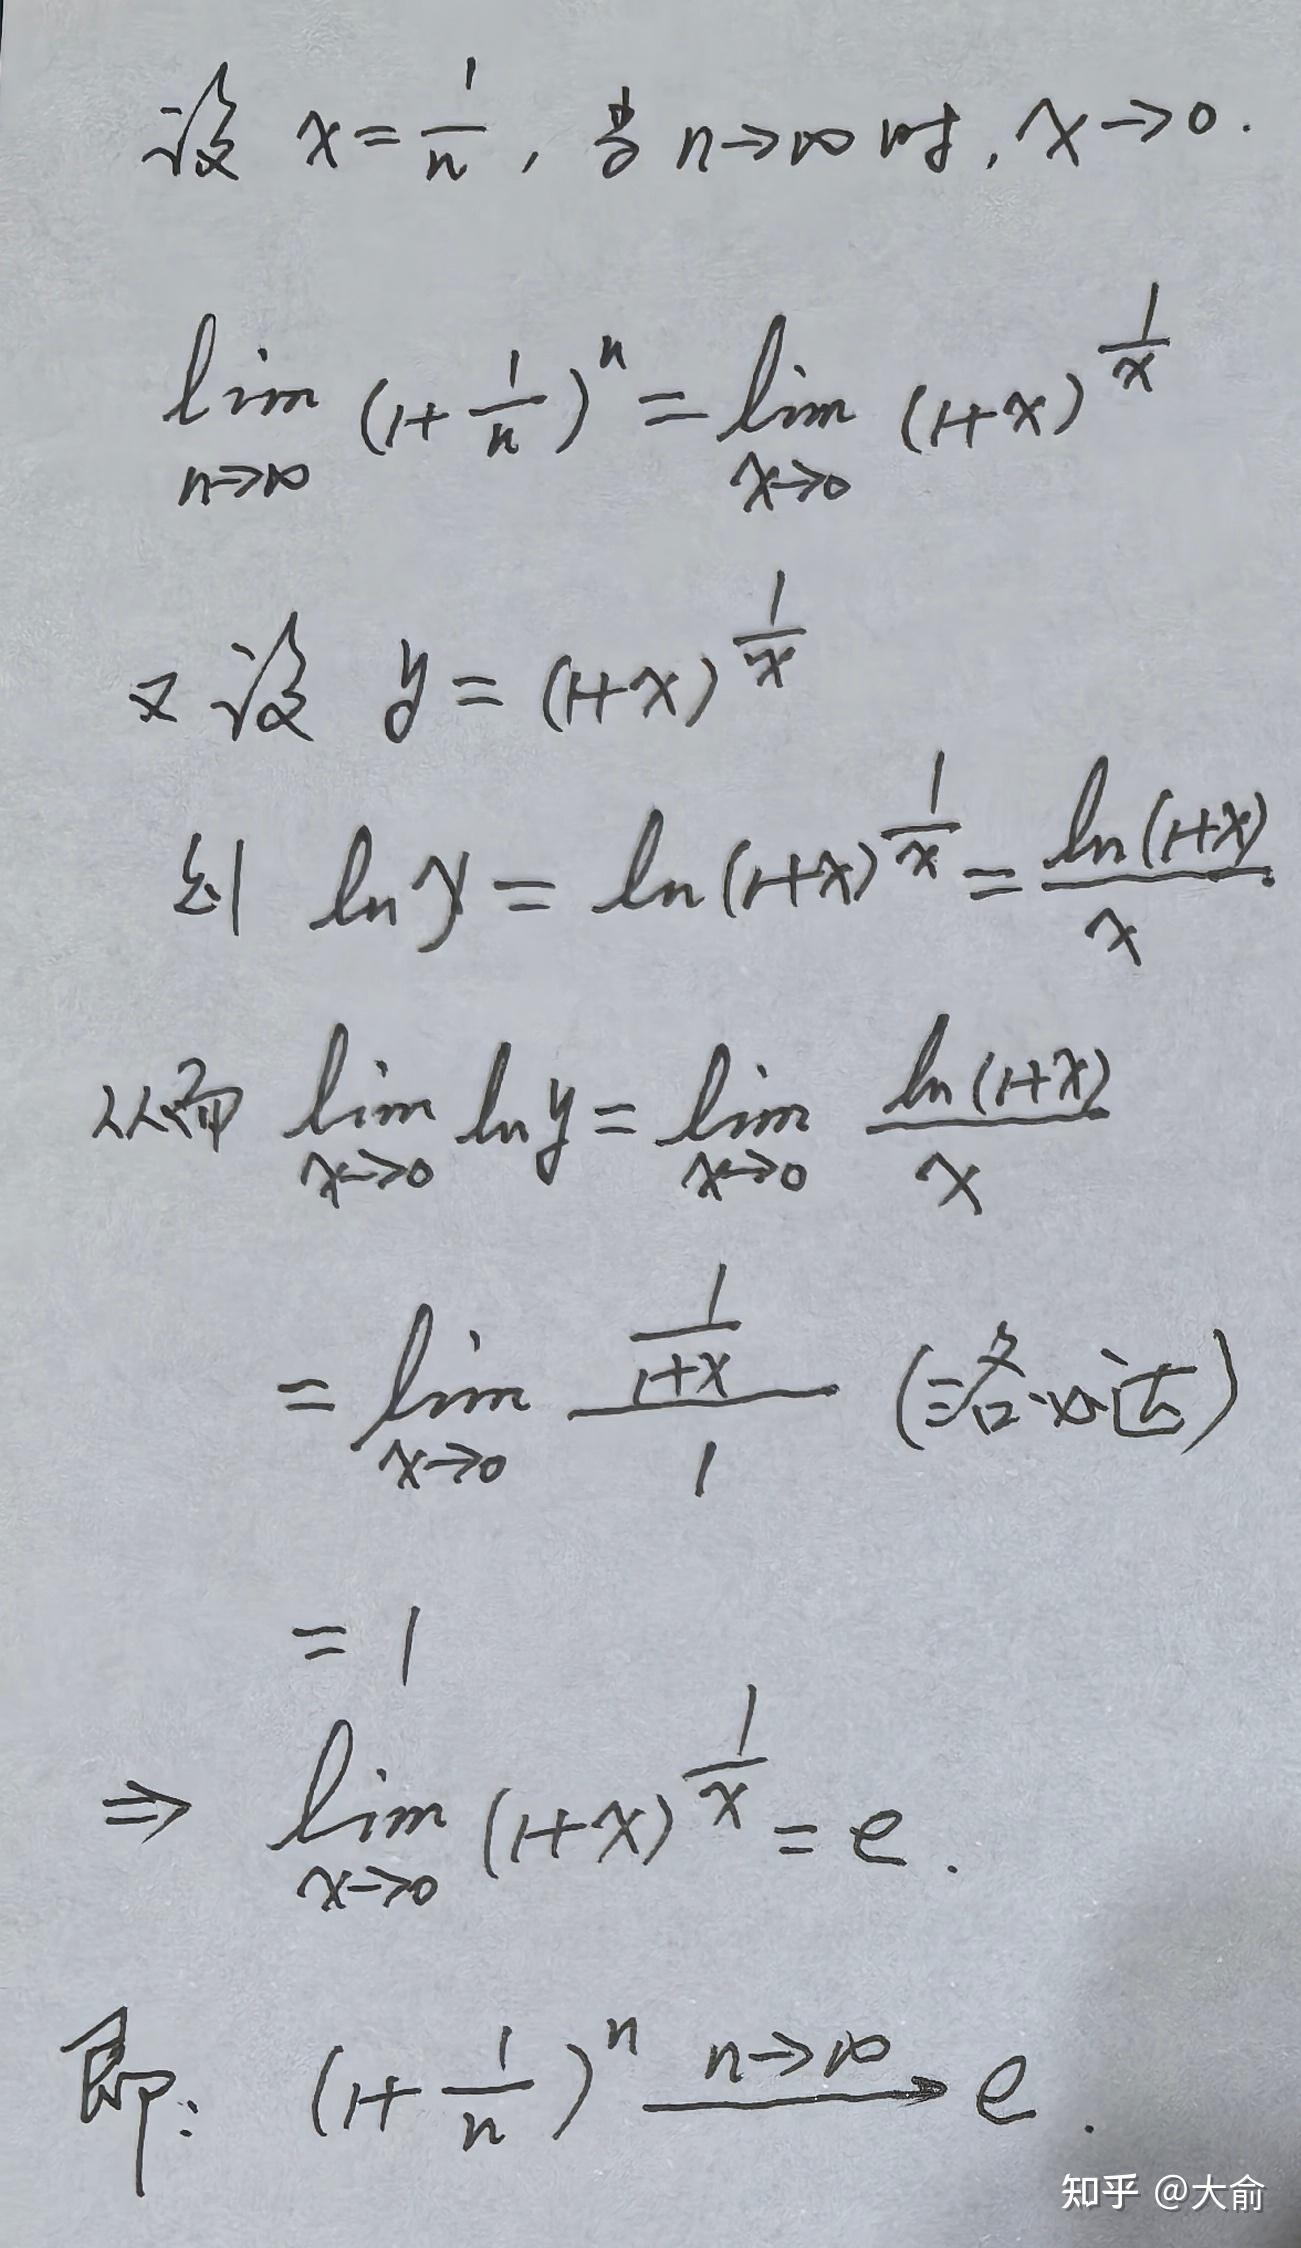 设 x = 1/n , 当 n→∞ 时, x→0.
lim_{n→∞} (1+1/n)^n = lim_{x→0} (1+x)^{1/x}
又设 y = (1+x)^{1/x}
则 ln y = ln(1+x)^{1/x} = ln(1+x)/x
从而 lim_{x→0} ln y = lim_{x→0} ln(1+x)/x
= lim_{x→0} (1/(1+x))/1 (洛必达)
= 1
⇒ lim_{x→0} (1+x)^{1/x} = e.
即: (1+1/n)^n \xrightarrow{n→∞} e.
知乎 @大俞